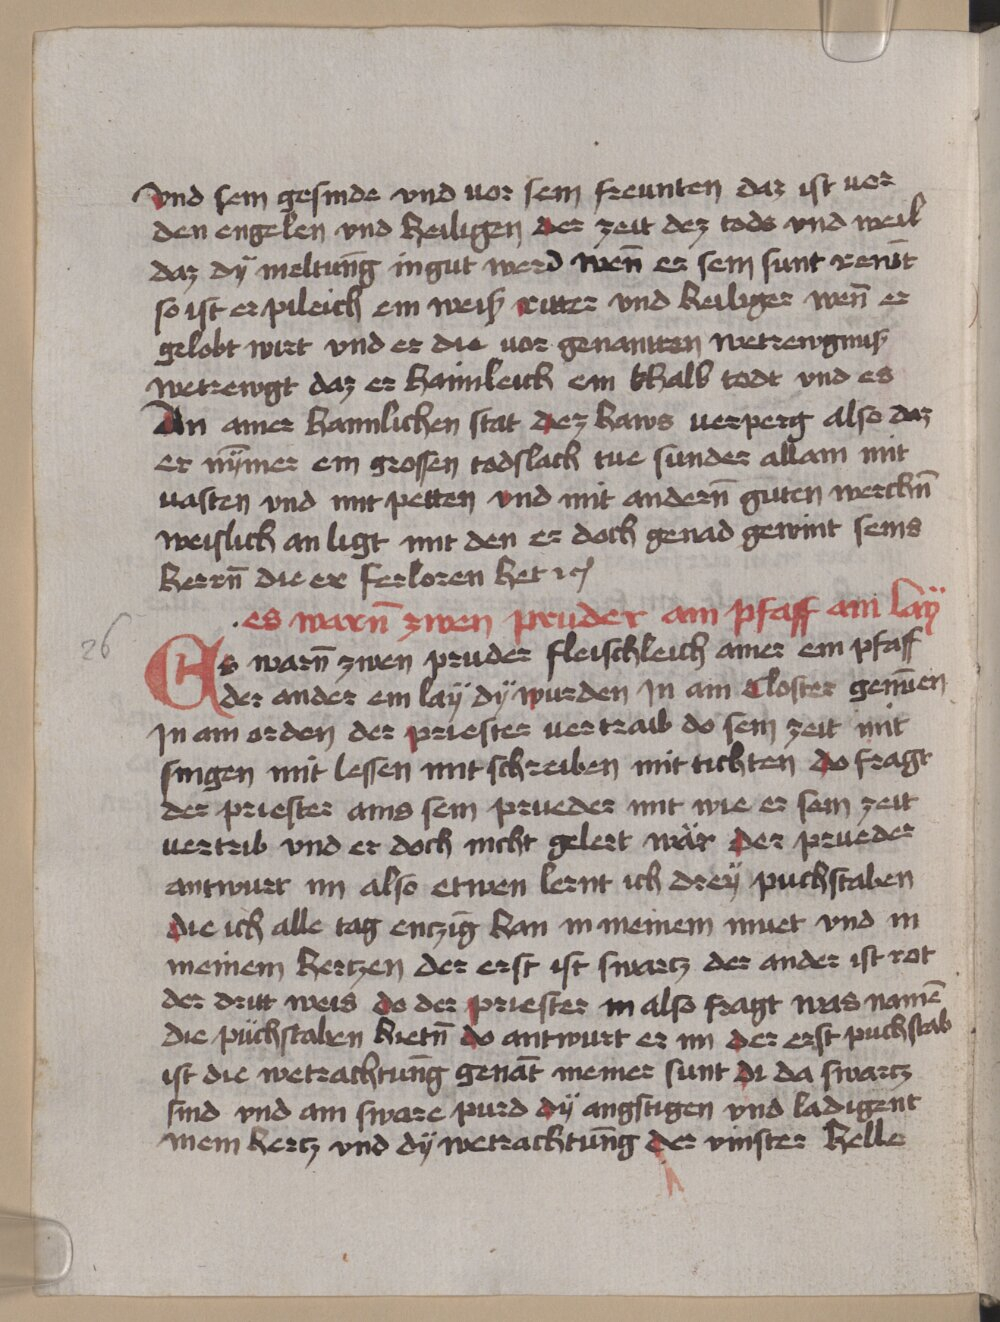 vnd sein gesinde vnd vor sein freunten daz ist vor
den engelen vnd heiligen der zeit dez tods vnd weil
daz dÿ meltūng in gut werd wen̄ er sein sunt renīt
so ist er pileich ein weiß ritter vnd heiliger wen̄ er
gelobt wirt vnd er die vor genanten wetzewgnuß
wetzewgt daz er haimleich ein khalb todt vnd es
An ainer haimlichen stat dez haws verperg also daz
er nȳmer ein grossen todslach tue sunder allain mit
vasten vnd mit petten vnd mit andern̄ guten werchn̄
weislich an ligt mit den er doch genad gewint seins
herrn̄ die er ferloren het ⁊c
es warn̄ zwen pruder ain pfaff ain laÿ
26
Es warn̄ zwen pruder fleischleich ainer ein pfaff
der ander ein laÿ dÿ wurden In ain Closter genūen
In ain orden der priester vertraib do sein zeit mit
singen mit lessen mit schreiben mit tichten do fragt
der priester ains sein prueder mit wie er sein zeit
vertrib vnd er doch nicht gelert wär der prueder
antwurt im also etwen lernt ich dreÿ puchstaben
die ich alle tag encziḡ han in meinem muet vnd in
meinem hertzen der erst ist swartz der ander ist rot
der dritt weis do der priester in also fragt was namē
die püchstaben hietn̄ do antwurt er im der erst puchstab
ist die wetrachtūng genāt meiner sunt di da swartz
sind vnd ain sware purd dÿ angstigen vnd ladigent
mein hertz vnd dÿ wetrachtūng der vinster helle